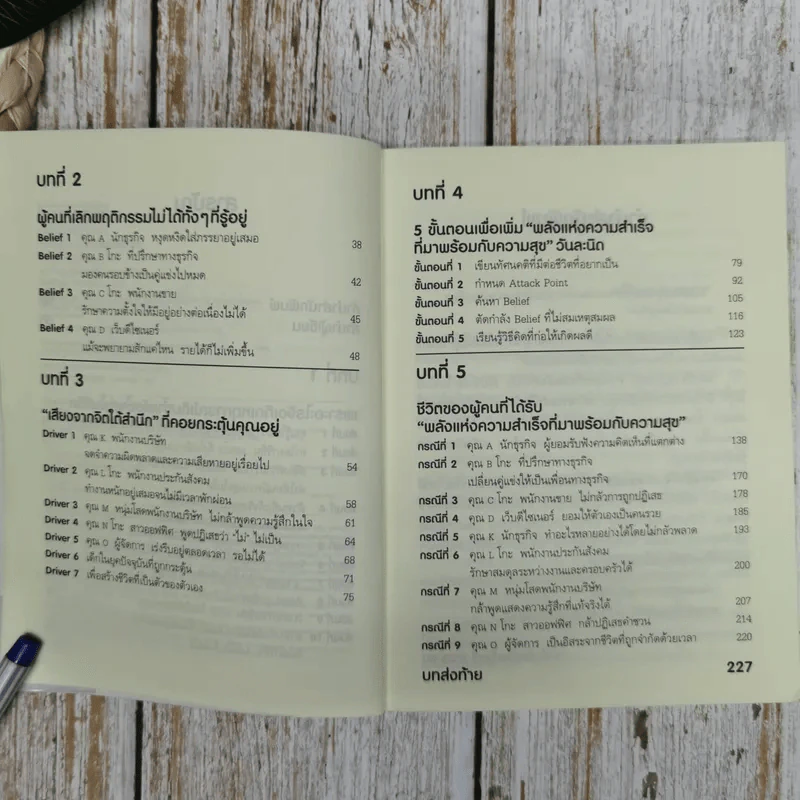 บทที่ 2
ผู้คนที่เลิกพฤติกรรมไม่ได้ทั้งๆ ที่รู้อยู่
Belief 1 คุณ A นักธุรกิจ หงุดหงิดใส่ภรรยาอยู่เสมอ 38
Belief 2 คุณ B โกะ ที่ปรึกษาทางธุรกิจ
มองคนรอบข้างเป็นคู่แข่งไปหมด 42
Belief 3 คุณ C โกะ พนักงานขาย
รักษาความตั้งใจให้มีอยู่อย่างต่อเนื่องไม่ได้ 45
Belief 4 คุณ D เว็บดีไซเนอร์
แม้จะพยายามสักแค่ไหน รายได้ก็ไม่เพิ่มขึ้น 48
บทที่ 3
"เสียงจากจิตใต้สำนึก" ที่คอยกระตุ้นคุณอยู่
Driver 1 คุณ K พนักงานบริษัท
จดจำความผิดพลาดและความเสียหายอยู่เรื่อยไป 54
Driver 2 คุณ L โกะ พนักงานประกันสังคม
ทำงานหนักอยู่เสมอจนไม่มีเวลาพักผ่อน 58
Driver 3 คุณ M หนุ่มโสดพนักงานบริษัท ไม่กล้าพูดความรู้สึกในใจ 61
Driver 4 คุณ N โกะ สาวออฟฟิศ พูดปฏิเสธว่า "ไม่" ไม่เป็น 64
Driver 5 คุณ O ผู้จัดการ เร่งรีบอยู่ตลอดเวลา รอไม่ได้ 68
Driver 6 เด็กในยุคปัจจุบันที่ถูกกระตุ้น 71
Driver 7 เพื่อสร้างชีวิตที่เป็นตัวของตัวเอง 75
บทที่ 4
5 ขั้นตอนเพื่อเพิ่ม "พลังแห่งความสำเร็จ
ที่มาพร้อมกับความสุข" วันละนิด
ขั้นตอนที่ 1 เขียนทัศนคติที่มีต่อชีวิตที่อยากเป็น 79
ขั้นตอนที่ 2 กำหนด Attack Point 92
ขั้นตอนที่ 3 ค้นหา Belief 105
ขั้นตอนที่ 4 ตัดกำลัง Belief ที่ไม่สมเหตุสมผล 116
ขั้นตอนที่ 5 เรียนรู้วิธีคิดที่ก่อให้เกิดผลดี 123
บทที่ 5
ชีวิตของผู้คนที่ได้รับ
"พลังแห่งความสำเร็จที่มาพร้อมกับความสุข"
กรณีที่ 1 คุณ A นักธุรกิจ ผู้ยอมรับฟังความคิดเห็นที่แตกต่าง 138
กรณีที่ 2 คุณ B โกะ ที่ปรึกษาทางธุรกิจ
เปลี่ยนคู่แข่งให้เป็นเพื่อนทางธุรกิจ 170
กรณีที่ 3 คุณ C โกะ พนักงานขาย ไม่กลัวการถูกปฏิเสธ 178
กรณีที่ 4 คุณ D เว็บดีไซเนอร์ ยอมให้ตัวเองเป็นคนรวย 185
กรณีที่ 5 คุณ K นักธุรกิจ ทำอะไรหลายอย่างได้โดยไม่กลัวพลาด 193
กรณีที่ 6 คุณ L โกะ พนักงานประกันสังคม
รักษาสมดุลระหว่างงานและครอบครัวได้ 200
กรณีที่ 7 คุณ M หนุ่มโสดพนักงานบริษัท
กล้าพูดแสดงความรู้สึกที่แท้จริงได้ 207
กรณีที่ 8 คุณ N โกะ สาวออฟฟิศ กล้าปฏิเสธคำชวน 214
กรณีที่ 9 คุณ O ผู้จัดการ เป็นอิสระจากชีวิตที่ถูกจำกัดด้วยเวลา 220
บทส่งท้าย 227